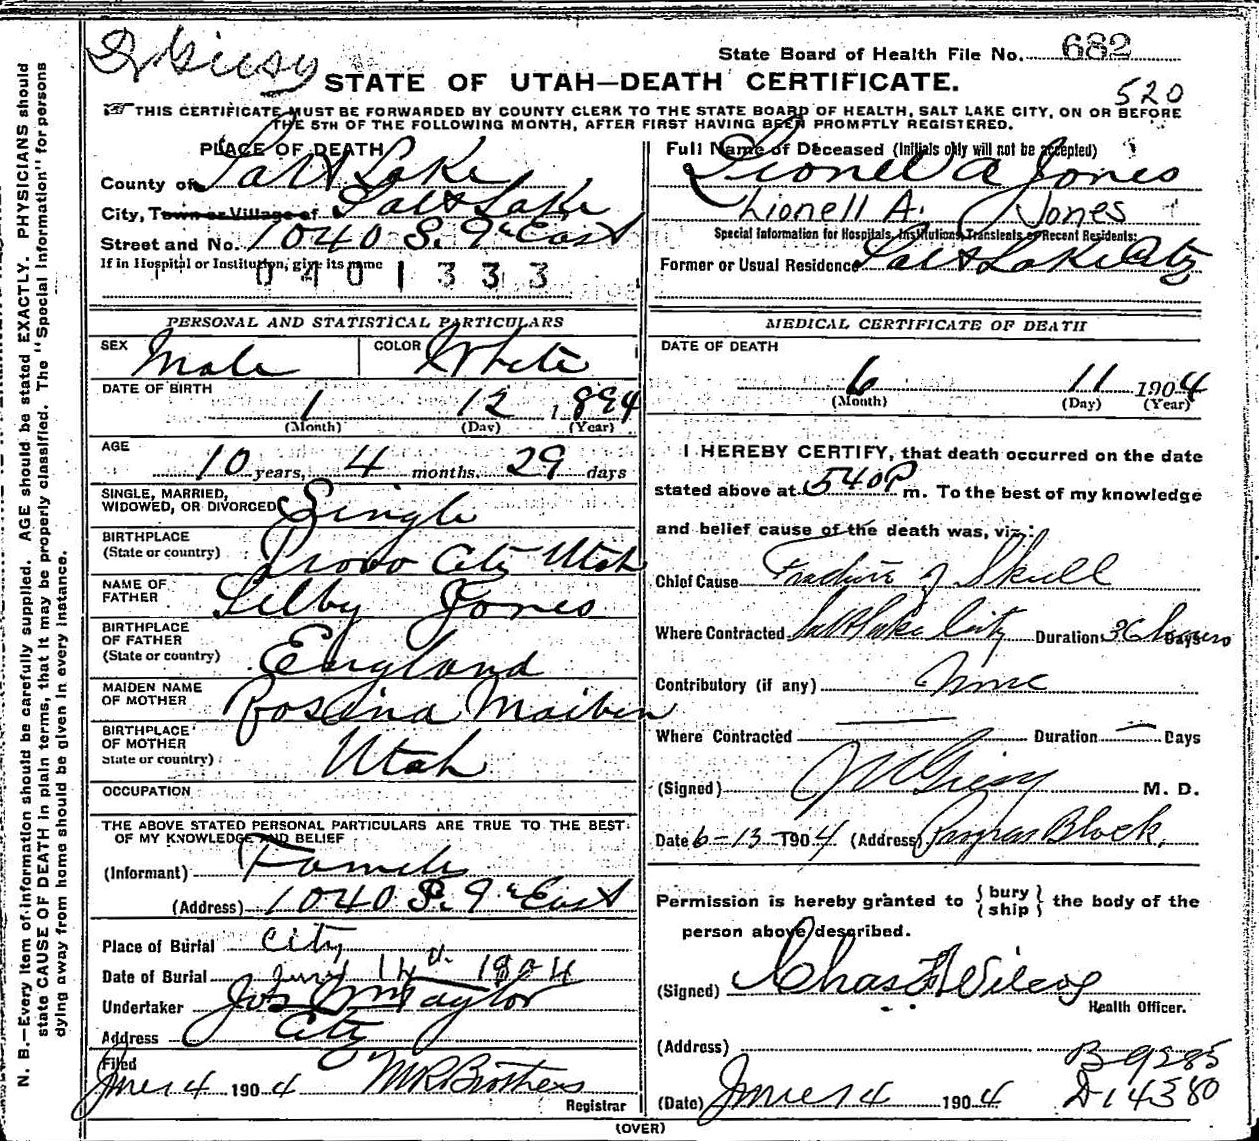 Dr Giesy
State Board of Health File No. 682
STATE OF UTAH—DEATH CERTIFICATE.
520
THIS CERTIFICATE MUST BE FORWARDED BY COUNTY CLERK TO THE STATE BOARD OF HEALTH, SALT LAKE CITY, ON OR BEFORE
THE 5TH OF THE FOLLOWING MONTH, AFTER FIRST HAVING BEEN PROMPTLY REGISTERED.
N. B.—Every item of information should be carefully supplied. AGE should be stated EXACTLY. PHYSICIANS should
state CAUSE OF DEATH in plain terms, that it may be properly classified. The "Special Information" for persons
dying away from home should be given in every instance.
PLACE OF DEATH
County of Salt Lake
City, Town or Village of Salt Lake
Street and No. 1040 S. 9th East
If in Hospital or Institution, give its name
0401333
PERSONAL AND STATISTICAL PARTICULARS
SEX Male COLOR White
DATE OF BIRTH
1 12 1894
(Month) (Day) (Year)
AGE
10 years, 4 months. 29 days
SINGLE, MARRIED,
WIDOWED, OR DIVORCED Single
BIRTHPLACE
(State or country) Provo City Utah
NAME OF
FATHER Selby Jones
BIRTHPLACE
OF FATHER
(State or country) England
MAIDEN NAME
OF MOTHER Rosina Maiben
BIRTHPLACE
OF MOTHER
State or country) Utah
OCCUPATION
THE ABOVE STATED PERSONAL PARTICULARS ARE TRUE TO THE BEST
OF MY KNOWLEDGE AND BELIEF
(Informant) Family
(Address) 1040 S. 9th East
Place of Burial City
Date of Burial June 14th 1904
Undertaker Jos Wm Taylor
Address City
Filed
June 14 1904 Registrar
Full Name of Deceased (Initials only will not be accepted)
Lionel A Jones
Lionell A. Jones
Special Information for Hospitals, Institutions, Transients or Recent Residents:
Former or Usual Residence Salt Lake City
MEDICAL CERTIFICATE OF DEATH
DATE OF DEATH
6 11 1904
(Month) (Day) (Year)
I HEREBY CERTIFY, that death occurred on the date
stated above at 540 P m. To the best of my knowledge
and belief cause of the death was, viz:
Chief Cause Fracture of Skull
Where Contracted Salt Lake City Duration 36 hours Days
Contributory (if any) None
Where Contracted — Duration — Days
(Signed) Giesy M. D.
Date 6-13 1904 (Address) Progress Block.
Permission is hereby granted to { bury ship } the body of the
person above described.
(Signed) Chas F Wilcox
Health Officer.
(Address)
B 9285
(Date) June 14 1904 D-14380
(OVER)